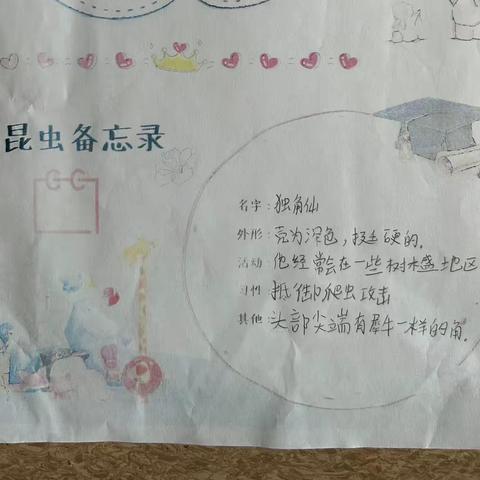 昆虫备忘录
名字：独角仙
外形：壳为深色，挺硬的。
活动：他经常会在一些树木盛地区
习惯：抵御爬虫攻击
其他：头部尖端有犀牛一样的角。